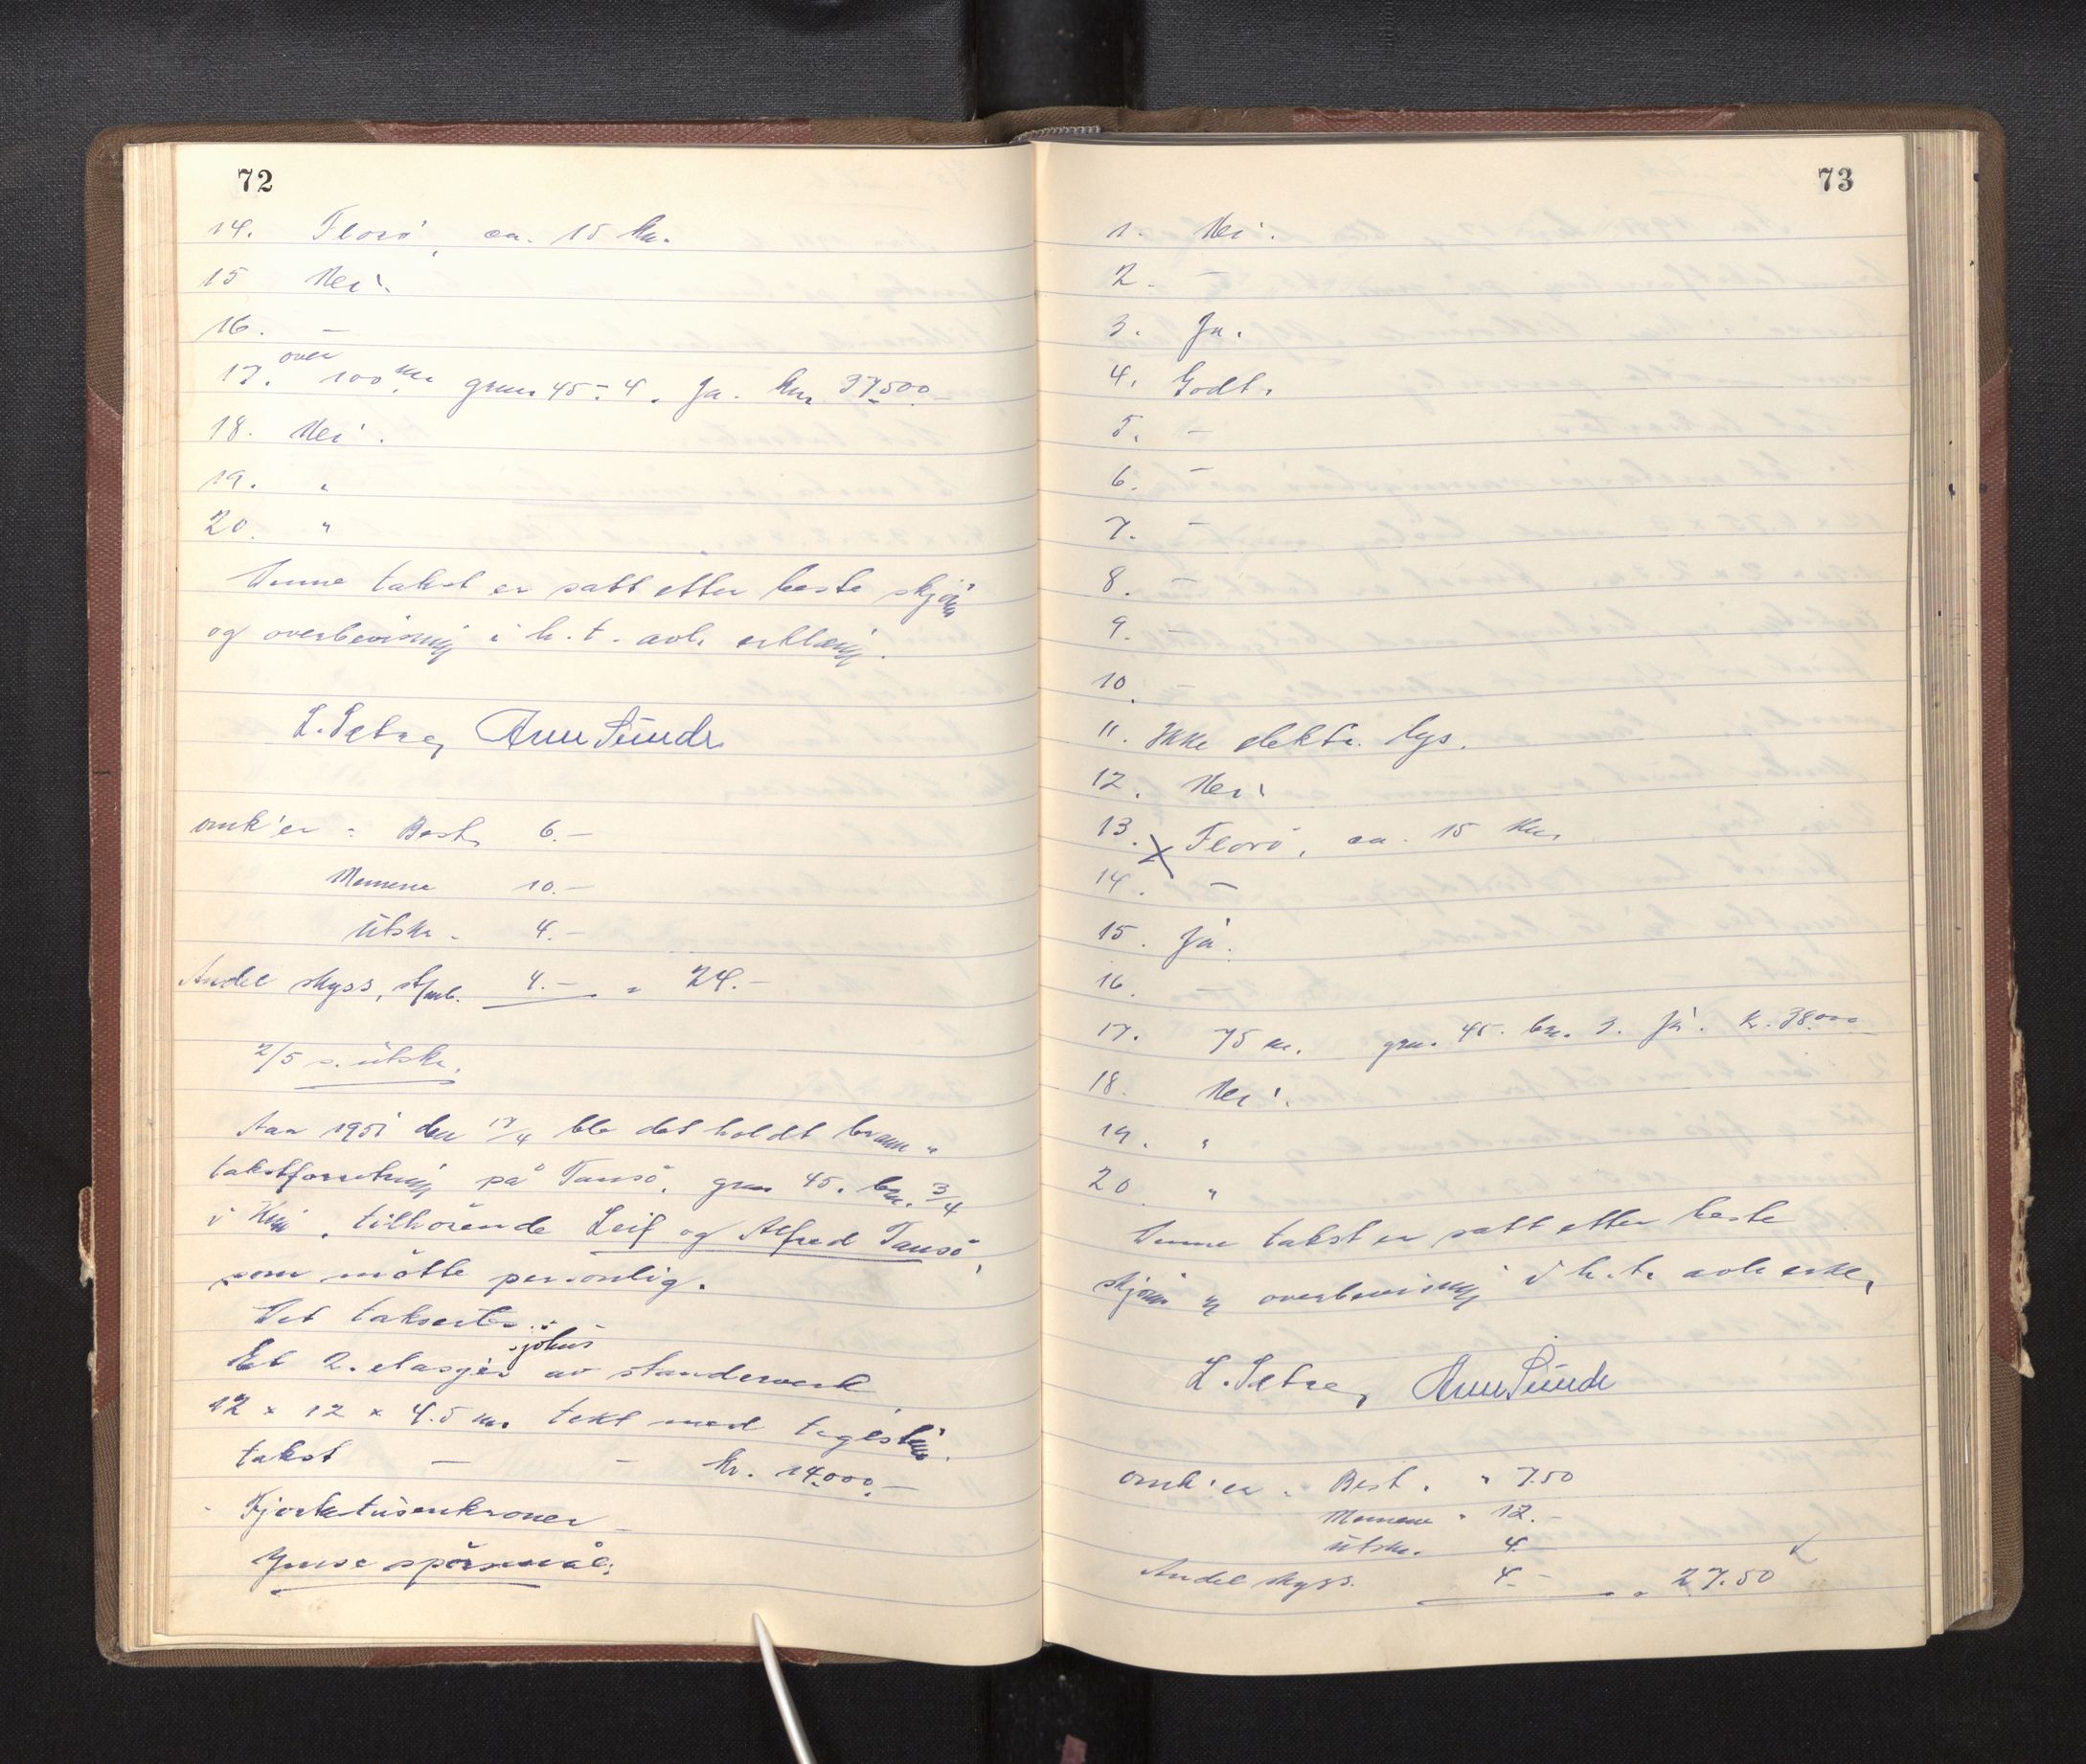 72
14. Florö, ca. 15 km.
15 Nei.
16. —
17. over 100 m gnr. 45 - 4. Ja. kr. 37500.-
18. Nei.
19. "
20. "
Denne takst er satt etter beste skjönn
og overbevisning i h. t. avl. erklæring.
L. Setre, Arne Sunde
omk'er : Best. 6.-
Mennene 10.-
Utskr. 4.-
Andel skyss, 4.- = 24.-
2/5 s. utskr.
Aar 1951 den 17/4 ble det holdt brann-
takstforretning på Tansö, gnr 45, bnr. 3/4
i Kinn, tilhörende Leif og Alfred Tansö,
som mötte personlig.
Det taksertes:
Et 2. etasjes sjöhus av standerverk
12 x 12 x 4.5 m. tekt med teglstein.
takst — — kr. 14.000.-
Fjortetusenkroner
Ymse spörsmål:
73
1. Nei.
2. —
3. Ja.
4. Godt.
5. —
6. —
7. —
8. —
9. —
10.
11. Ikke elektr. lys.
12. Nei
13. x Florö, ca. 15 km
14. —
15. Ja.
16. —
17. 75 m. gnr. 45. bnr. 3. Ja. k. 38.000
18. Nei.
19. "
20 "
Denne takst er satt etter beste
skjönn og overbevisning i h. t. avl. erkl.
L. Setre, Arne Sunde
omk'er : Best. " 7.50
Mennene " 12.-
utskr. 4.-
Andel skyss. 4.- = 27.50